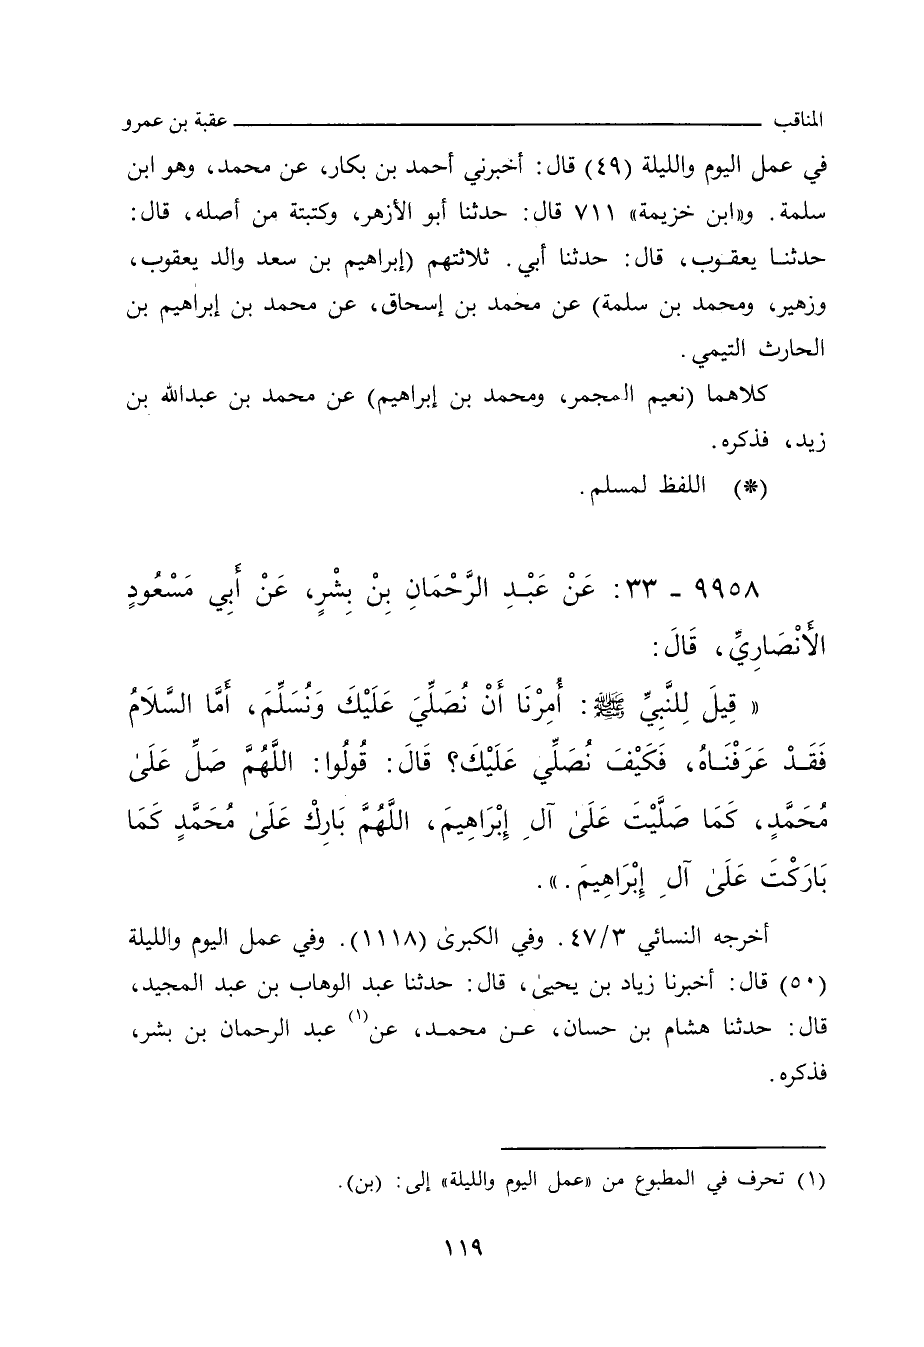 المناقب ــــــــــــــــــــــــــــــــ عقبة بن عمرو
في عمل اليوم والليلة (٤٩) قال: أخبرني أحمد بن بكار، عن محمد، وهو ابن
سلمة. و«ابن خزيمة» ٧١١ قال: حدثنا أبو الأزهر، وكتبتة من أصله، قال:
حدثنا يعقوب، قال: حدثنا أبي. ثلاثتهم (إبراهيم بن سعد والد يعقوب،
وزهير، ومحمد بن سلمة) عن محمد بن إسحاق، عن محمد بن إبراهيم بن
الحارث التيمي.
كلاهما (نعيم المجمر، ومحمد بن إبراهيم) عن محمد بن عبدالله بن
زيد، فذكره.
(*) اللفظ لمسلم.
٩٩٥٨ - ٣٣: عَنْ عَبْدِ الرَّحْمَانِ بِنْ بِشْرٍ، عَنْ أَبِي مَسْعُودٍ
الأَنْصَارِيِّ، قَالَ:
« قِيلَ لِلنَّبِيِّ ﷺ: أُمِرْنَا أَنْ نُصَلِّيَ عَلَيْكَ وَنُسَلِّمَ، أَمَّا السَّلَامُ
فَقَدْ عَرَفْنَاهُ، فَكَيْفَ نُصَلِّي عَلَيْكَ؟ قَالَ: قُولُوا: اللَّهُمَّ صَلِّ عَلَىٰ
مُحَمَّدٍ، كَمَا صَلَّيْتَ عَلَىٰ آلِ إِبْرَاهِيمَ، اللَّهُمَّ بَارِكْ عَلَىٰ مُحَمَّدٍ كَمَا
بَارَكْتَ عَلَىٰ آلِ إِبْرَاهِيمَ.».
أخرجه النسائي ٤٧/٣. وفي الكبرىٰ (١١١٨). وفي عمل اليوم والليلة
(٥٠) قال: أخبرنا زياد بن يحيىٰ، قال: حدثنا عبد الوهاب بن عبد المجيد،
قال: حدثنا هشام بن حسان، عن محمد، عن(١) عبد الرحمان بن بشر،
فذكره.
(١) تحرف في المطبوع من «عمل اليوم والليلة» إلى: (بن).
١١٩